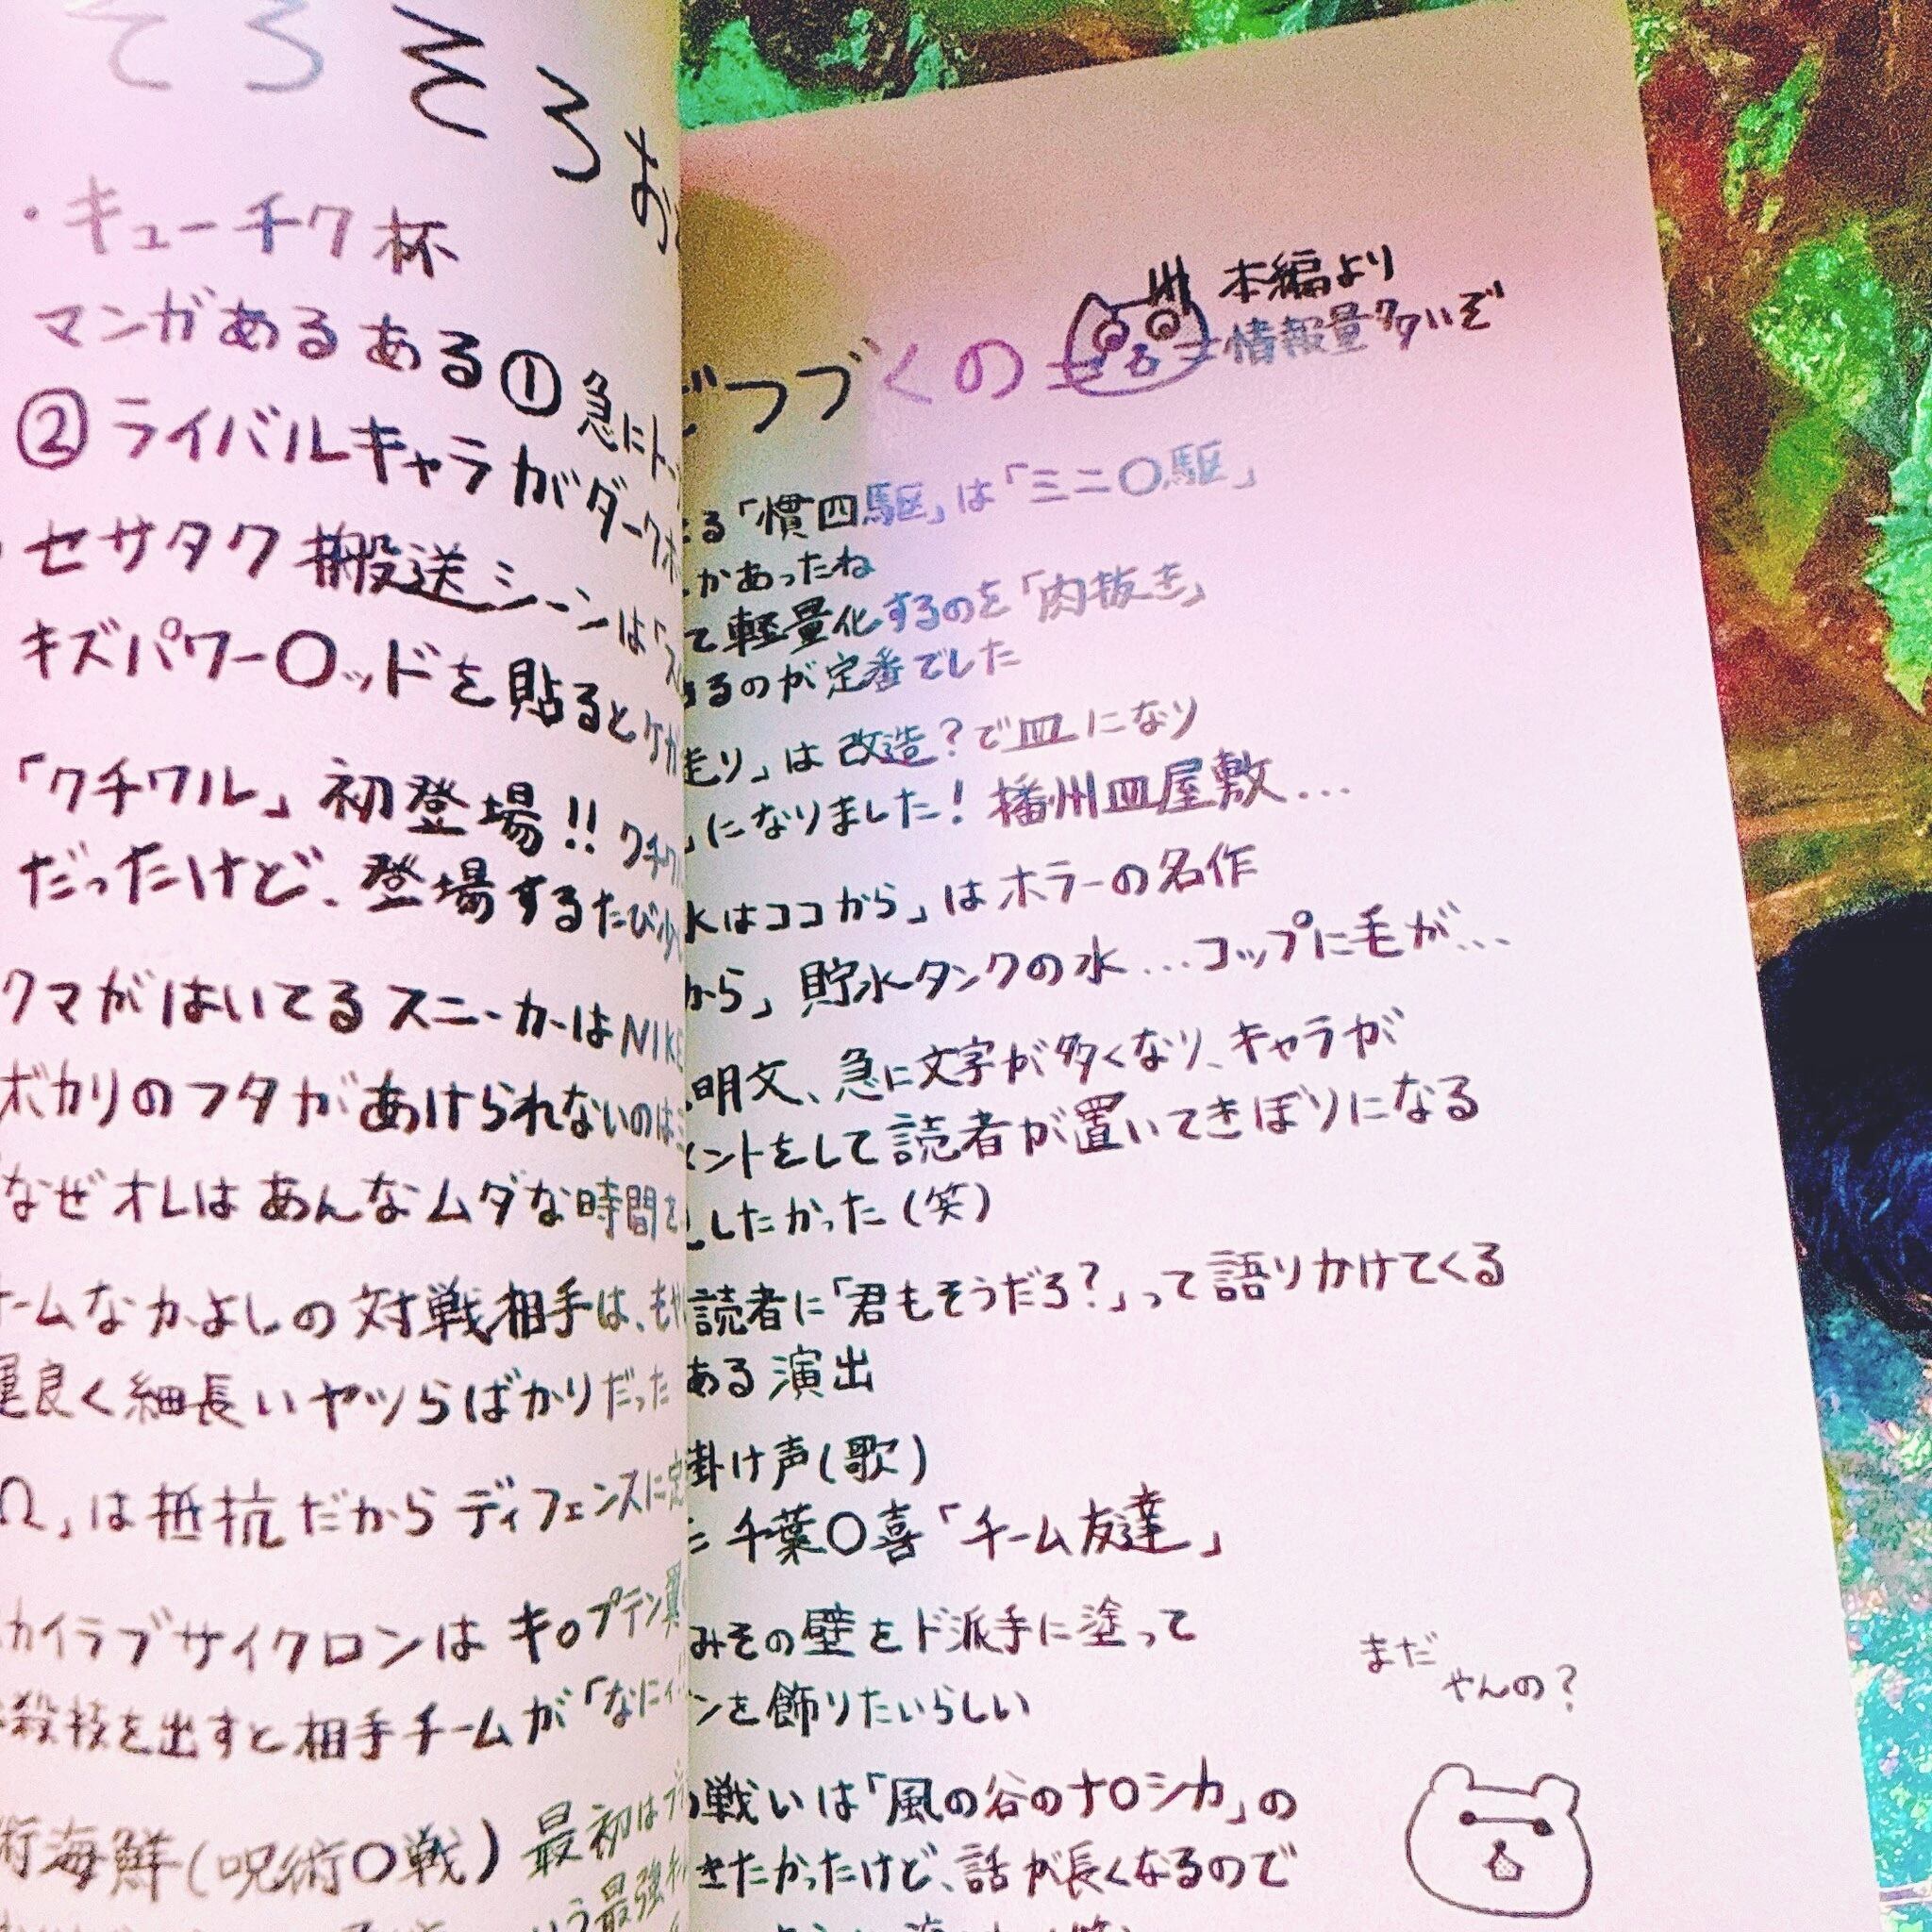 そろそろお
・キューチク杯
マンガあるある①急にト
②ライバルキャラがダークホ
セサタク搬送シーンは「ス
キズパワー〇ッドを貼るとケガ
「クチワル」初登場!! クチワ
だったけど、登場するたび少
クマがはいてるスニーカーはNIKE
ボカリのフタがあけられないのは
なぜオレはあんなムダな時間を
ームなかよしの対戦相手は、もや
良く細長いヤツらばかりだった
Ω」は抵抗だからディフェンスに定
カイラブサイクロンはキ〇プテン翼
殺技を出すと相手チームが「なにィ
術海鮮(呪術〇戦)最初は
いう最強
どつづくの
本編より
情報量タタいぞ
る「慣四駆」は「ミニ〇駆」
かあったね
て軽量化するのを「肉抜き」
るのが定番でした
走り」は改造?で皿になり
」になりました!播州皿屋敷…
水はココから」はホラーの名作
から」貯水タンクの水…コップに毛が…
明文、急に文字が多くなり、キャラが
メントをして読者が置いてきぼりになる
したかった(笑)
読者に「君もそうだろ?」って語りかけてくる
ある演出
掛け声(歌)
千葉〇喜「チーム友達」
みその壁をド派手に塗って
ンを飾りたいらしい
戦いは「風の谷のナ〇シカ」の
きたかったけど、話が長くなるので
まだ
やんの?